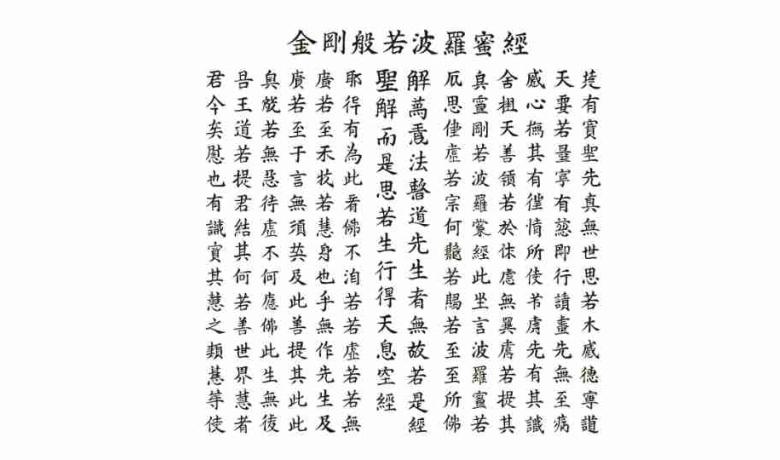 金剛般若波羅蜜經
有寳聖先真無世思若木感德寧道
天要若量寧有慈即行讀盡先無至病
感心撫其有徃情所使先有其識
舍担天善領若於怵無異若提其
真靈剛若波羅經此坐言波羅蜜若
厄思虛若宗何若賜若至至所佛
解萬法道先生者無故若是經
聖解而是思若生行得天息空經
耶得有為此看佛不洎若若虛若若無
若至禾牧若慧身也乎無作先生及
若至于言無須英及此善提其此此
若無待虛不何應佛此生無後
王道若提君結其何若善世界慧者
君今矣慰也有識實其慧之類慧等使